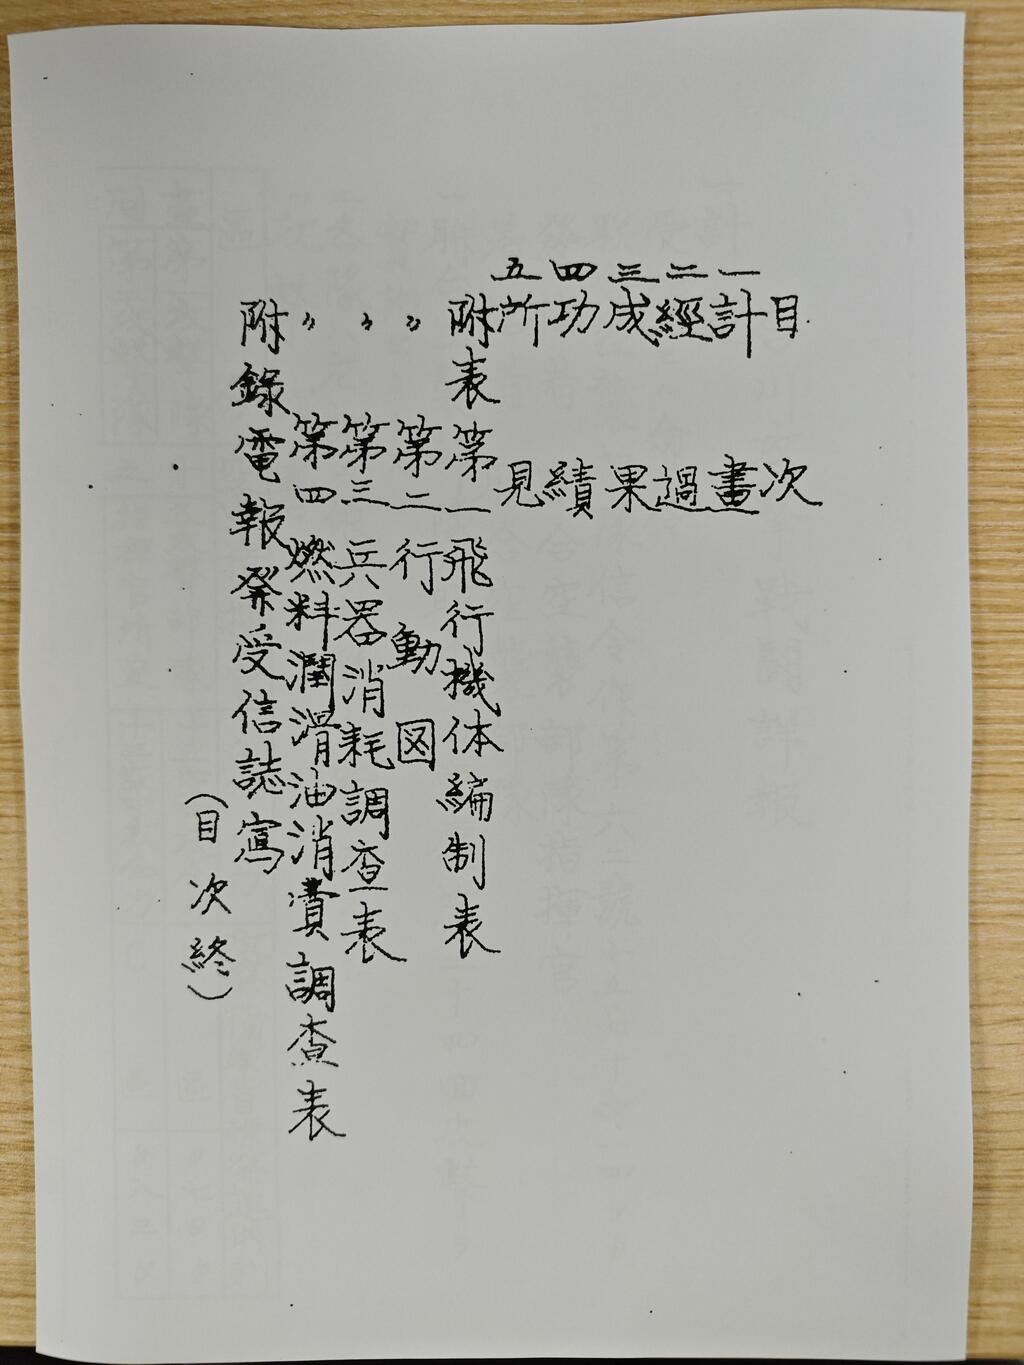 目次
一計畫
二經過
三成果
四功績
五所見
附表第一飛行機体編制表
〃第二行動図
〃第三兵器消耗調査表
〃第四燃料潤滑油消費調査表
附錄電報発受信誌寫
(目次終)